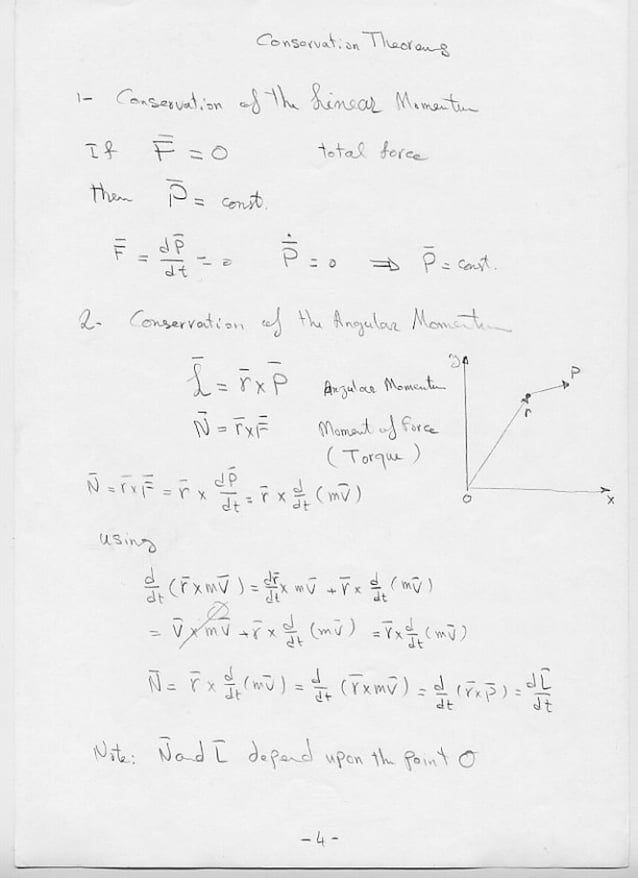 Conservation Theorems
1- Conservation of the Linear Momentum
If F̄ = 0 total force
then P̄ = const.
F̄ = dp̄/dt = 0 Ṗ̄ = 0 ⇒ P̄ = const.
2- Conservation of the Angular Momentum
L̄ = r̄ × P̄ Angular Momentum
N̄ = r̄ × F̄ Moment of Force
(Torque)
y
P
r
O
x
N̄ = r̄ × F̄ = r̄ × dp̄/dt = r̄ × d/dt (mv̄)
using
d/dt (r̄ × mv̄) = dr̄/dt × mv̄ + r̄ × d/dt (mv̄)
= v̄ × mv̄ 0 + r̄ × d/dt (mv̄) = r̄ × d/dt (mv̄)
N̄ = r̄ × d/dt (mv̄) = d/dt (r̄ × mv̄) = d/dt (r̄ × p̄) = dL̄/dt
Note: N̄ and L̄ depend upon the point O
- 4 -